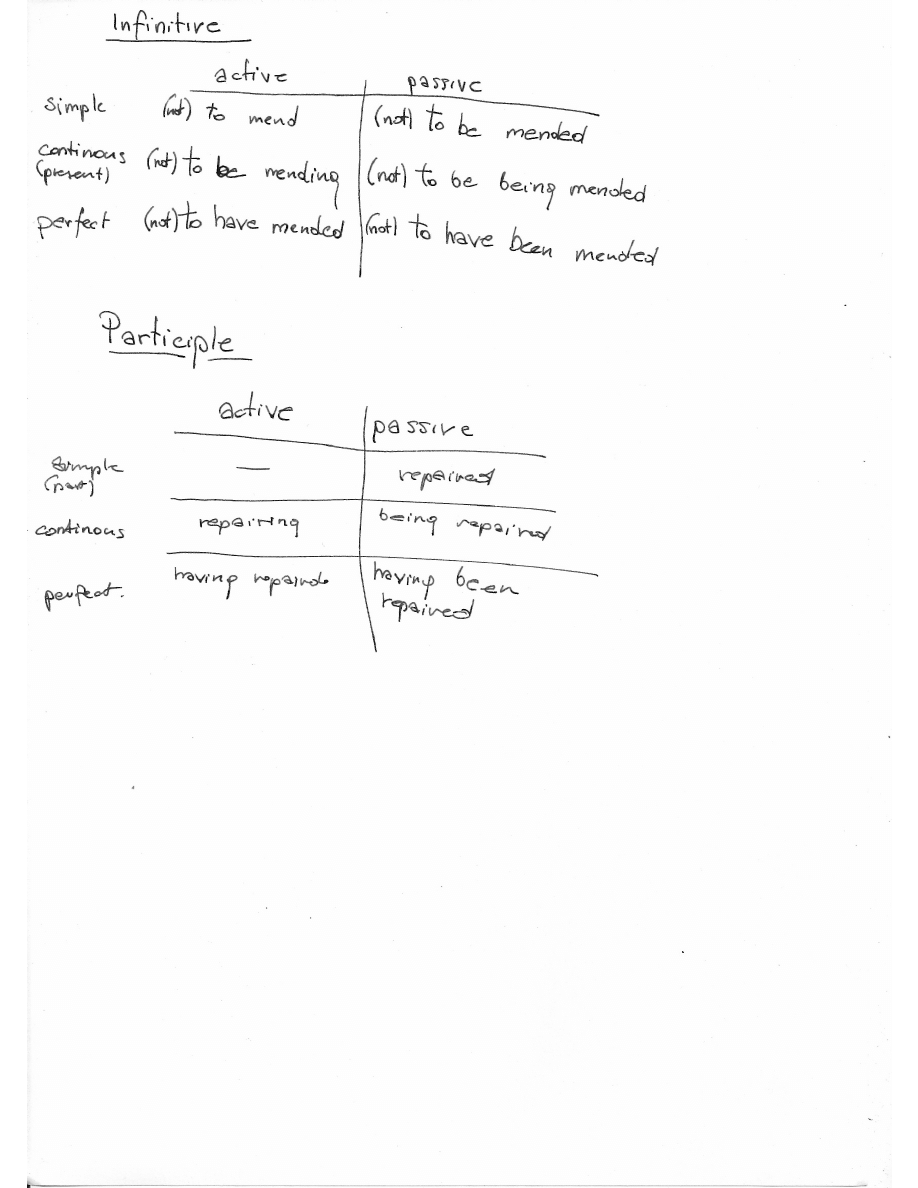 Infinitive
active passive
simple (not) to mend (not) to be mended
continous (not) to be mending (not) to be being mended
(present)
perfect (not) to have mended (not) to have been mended
Participle
active passive
simple — repaired
(past)
continous repairing being repaired
perfect. having repaired having been
repaired